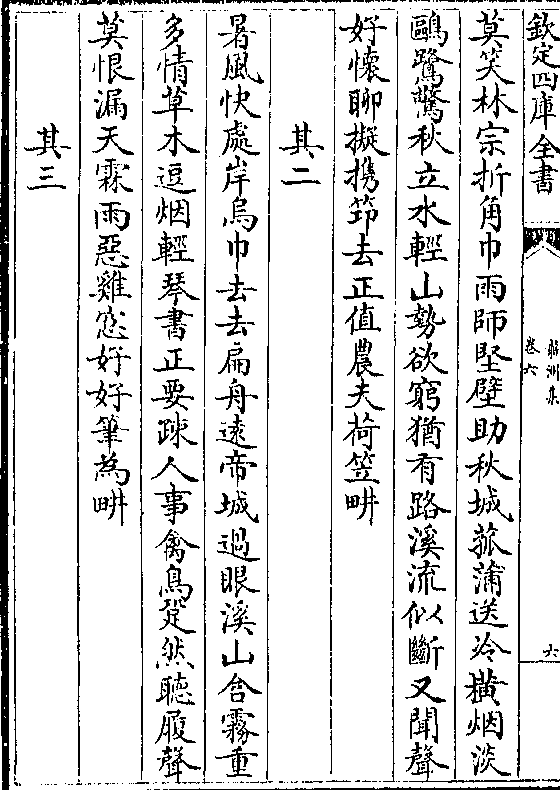 欽定四庫全書
卷六
六
莫笑林宗折角巾雨師堅壁助秋城菰蒲送冷橫烟淡
鷗鷺驚秋立水輕山勢欲窮猶有路溪流似斷又聞聲
好懷聊擬携筇去正值農夫荷笠畊
其二
暑風快處岸烏巾去去扁舟遠帝城過眼溪山含霧重
多情草木逗烟輕琴書正要踈人事禽鳥跫然聽履聲
莫恨漏天霖雨惡雞窓好好筆為畊
其三